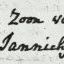 Zoon va
Jannich